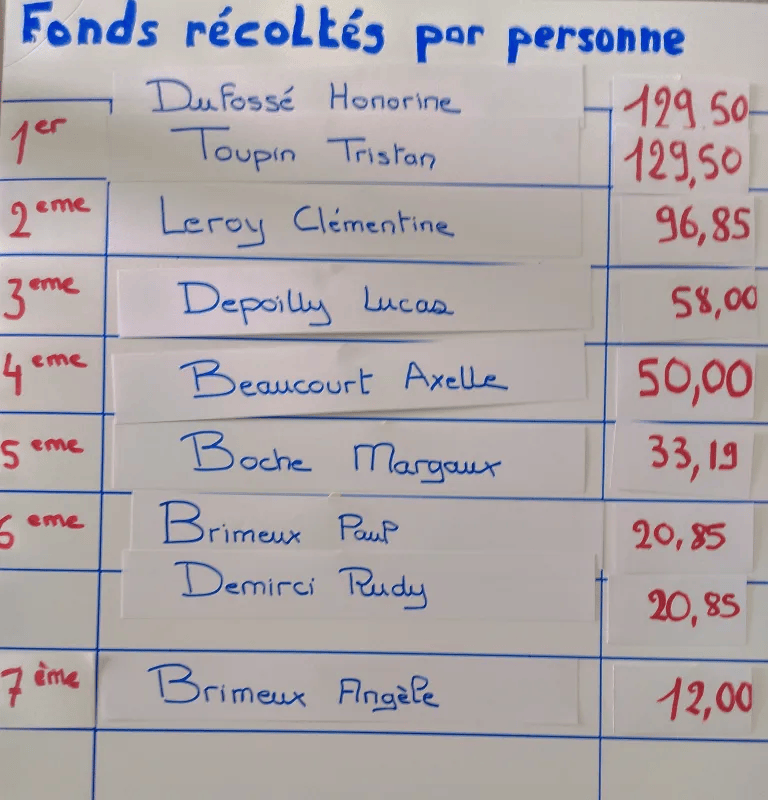 Fonds récoltés par personne
Dufossé Honorine 129,50
1er Toupin Tristan 129,50
2eme Leroy Clémentine 96,85
3eme Depoilly Lucas 58,00
4eme Beaucourt Axelle 50,00
5eme Boche Margaux 33,19
6eme Brimeux Paul 20,85
Demirci Rudy 20,85
7ème Brimeux Angèle 12,00